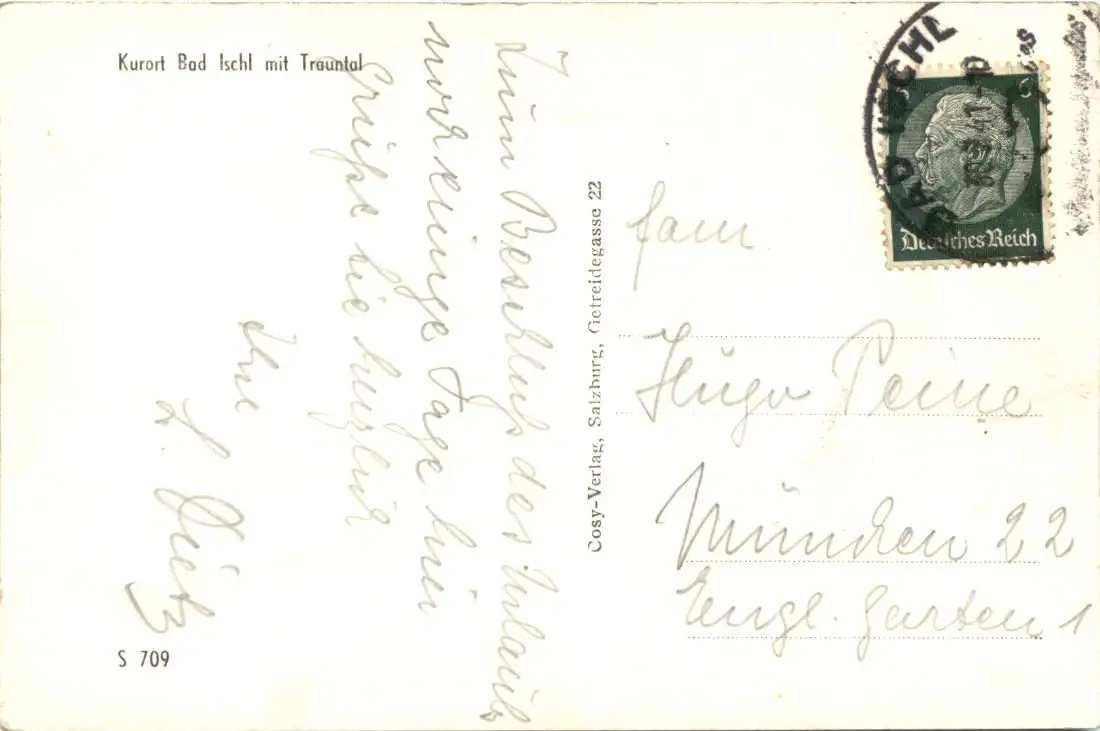 Kurort Bad Ischl mit Trauntal
Zum Beschluß des Urlaubs
noch einige Tage hier
Grüße Sie herzlich
Ihre
L. Dietz
S 709
Cosy-Verlag, Salzburg, Getreidegasse 22
BAD ISCHL
41-10
6
Deutsches Reich
Fam
Hugo Peine
München 22
Engl. Garten 1